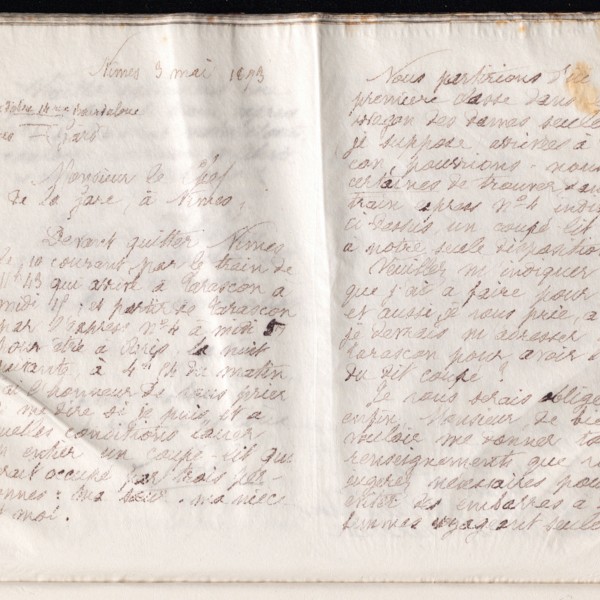 Nîmes 3 mai 1893
Monsieur le Chef
de la gare, à Nîmes,
Devant quitter Nîmes
le 10 courant par le train de
11h43 qui arrive à Tarascon à
midi 18, et partir de Tarascon
par l'express n°4 à midi
pour être à Paris, la nuit
suivante, à 4h 54 du matin
j'ai l'honneur de vous prier
de me dire si je puis, et à
quelles conditions, louer
en entier un coupé-lit qui
serait occupé par trois per-
sonnes: ma ma nièce
et moi.
Nous partirions d'ici
première classe dans
wagon des dames seules
je suppose, arrivées à
con pourrions-nous
certaines de trouver dans
train express n°4 indi
ci-dessus, un coupé lit
à notre seule disposition
Veuillez m'indiquer
que j'ai à faire pour
et aussi, je vous prie, a
je devrais m'adresser
Tarascon pour avoir
du dit coupé?
Je vous serais oblige
enfin, Monsieur de bie
vouloir me donner to
renseignements que
jugerez nécessaires pou
éviter des embarras à
femmes voyageant seule